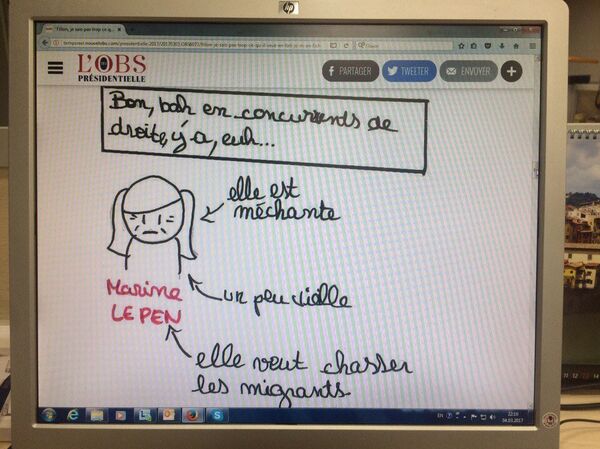 hp
L'OBS
PRÉSIDENTIELLE
PARTAGER
TWEETER
ENVOYER
Bon, bah en concurrents de
droite, y'a, euh...
elle est
méchante
un peu vieille
Marine
LE PEN
elle veut chasser
les migrants
EN
22:16
04.03.2017